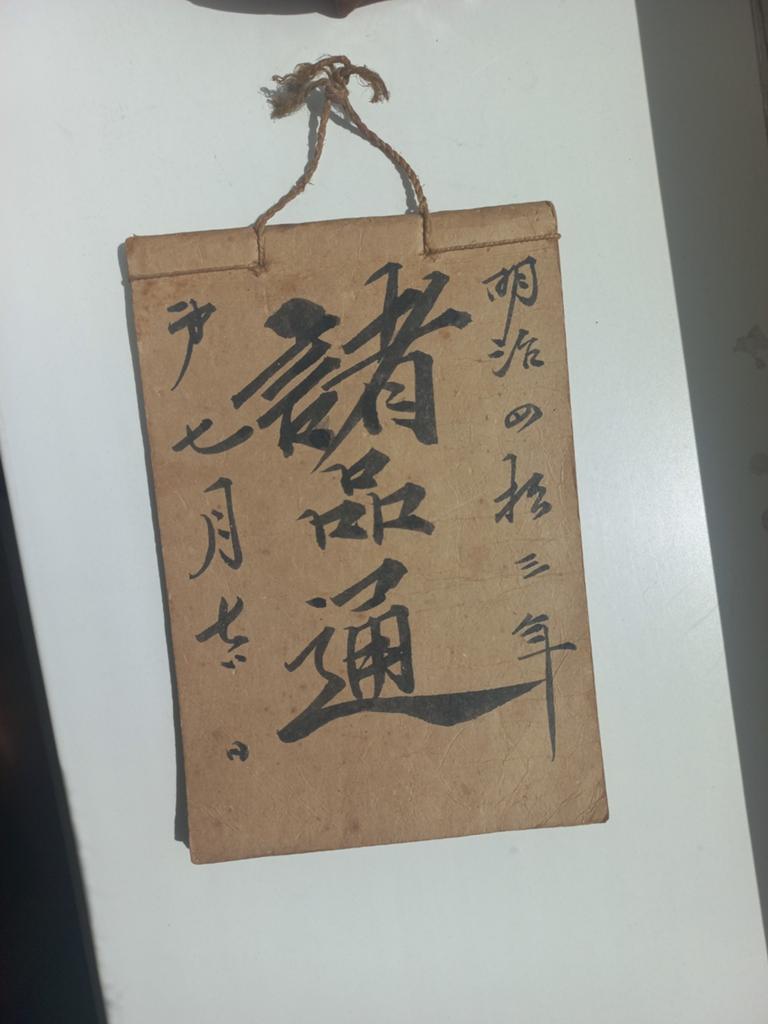 明治四拾三年
諸品通
戌七月吉日